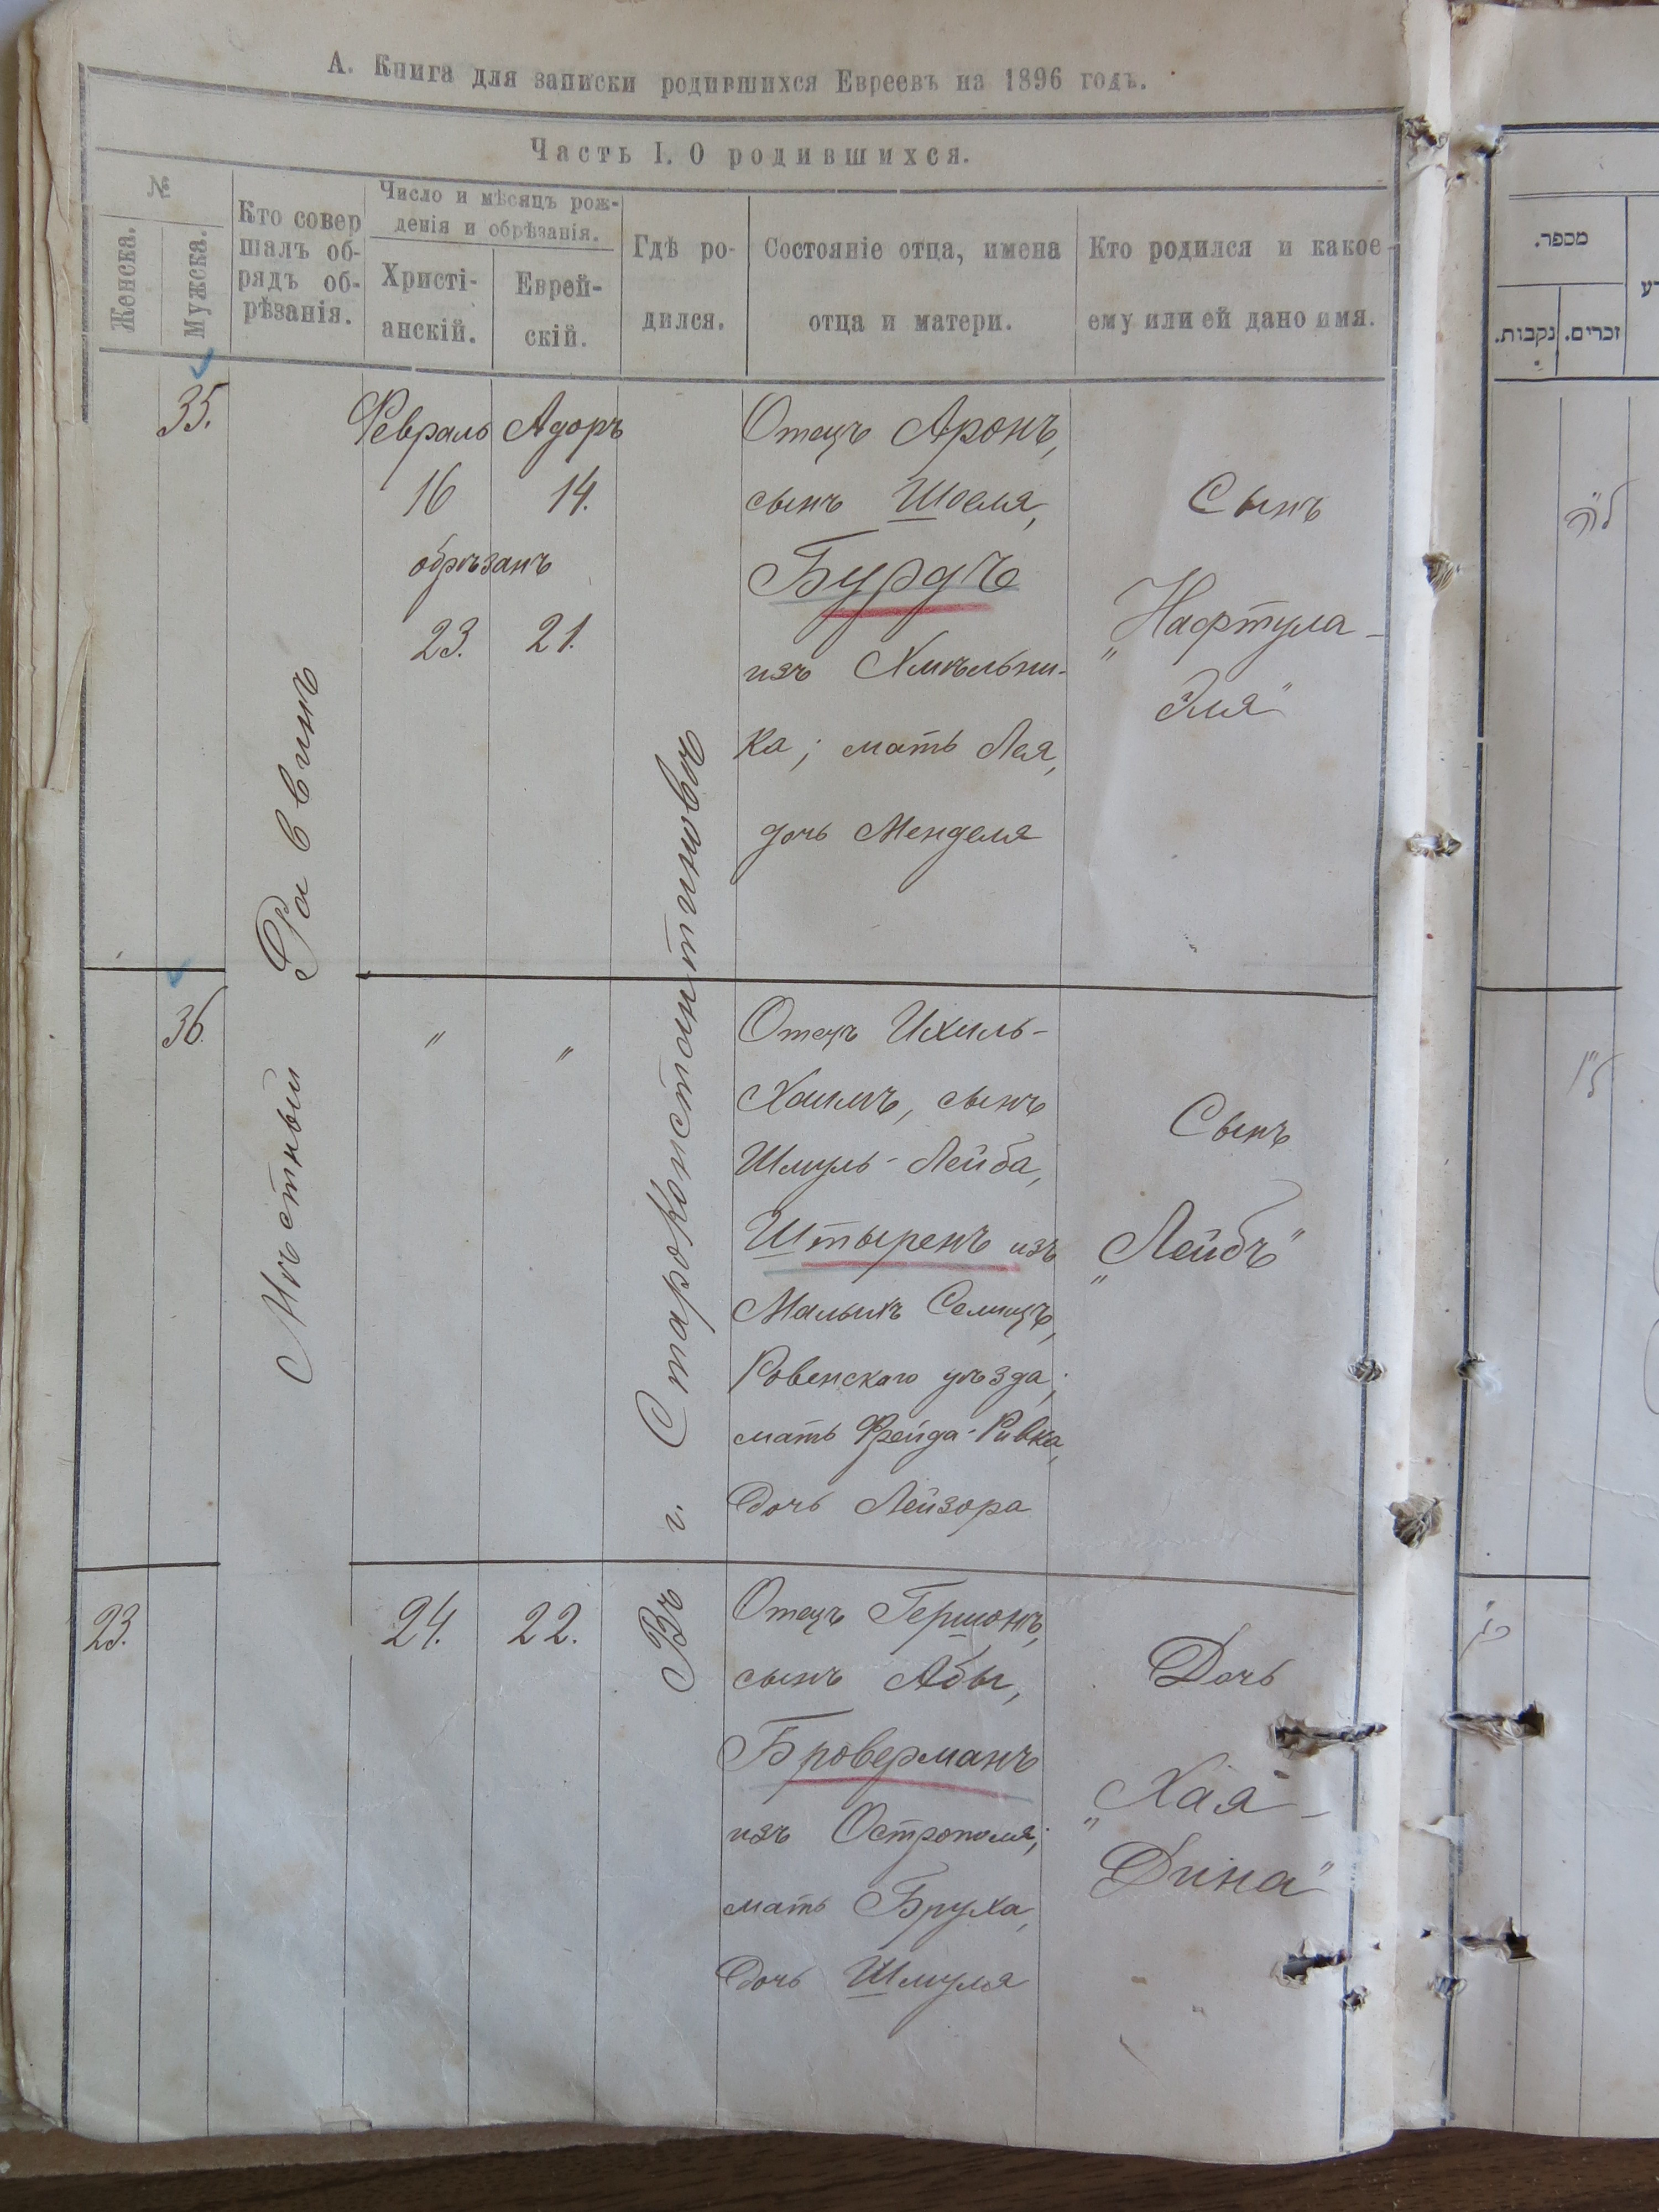 А. Книга для записки родившихся Евреевъ на 1896 годъ.
Часть I. О родившихся.
№
Женска.
Мужска.
Кто совер
шалъ об-
рядъ об-
рѣзанія.
Число и мѣсяцъ рож-
денія и обрѣзанія.
Христі-
анскій.
Еврей-
скій.
Гдѣ ро-
дился.
Состояніе отца, имена
отца и матери.
Кто родился и какое
ему или ей дано имя.
35.
Мѣстный Раввинъ
Февраль
16
Адоръ
14.
обрѣзанъ
23.
21.
Въ г. Староконстантиновѣ
Отецъ Аронъ,
сынъ Шоеля,
Бурдъ
изъ Хмѣльни-
ка; мать Лея,
дочь Менделя
Сынъ
„Нафтула-
Эля"
36.
"
"
Отецъ Ихиль-
Хаимъ, сынъ
Шмуль-Лейба,
Штыренъ изъ
Малыхъ Селищъ,
Ровенскаго уѣзда;
мать Фрейда-Ривка,
дочь Лейзора
Сынъ
„Лейбъ"
23.
24.
22.
Отецъ Гершонъ,
сынъ Абы,
Броверманъ
изъ Острополя;
мать Бруха,
дочь Шмуля
Дочь
„Хая-
Дина"
מספר.
נקבות.
זכרים.
ל"ה
ל"ו
כ"ג